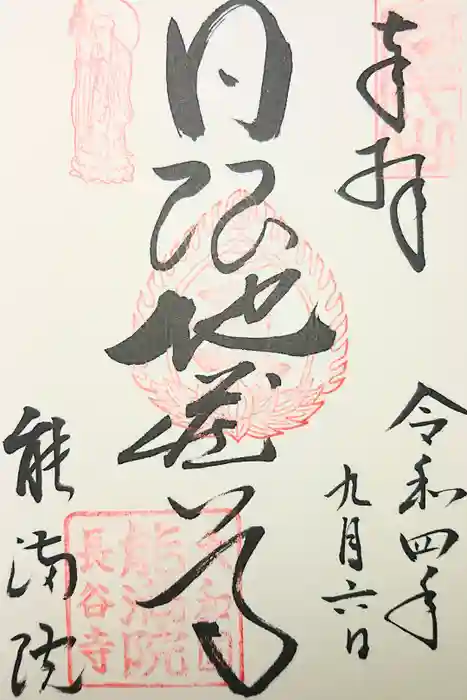 奉拝
令和四年
九月六日
日限地蔵尊
能満院
大和国
能満院
長谷寺